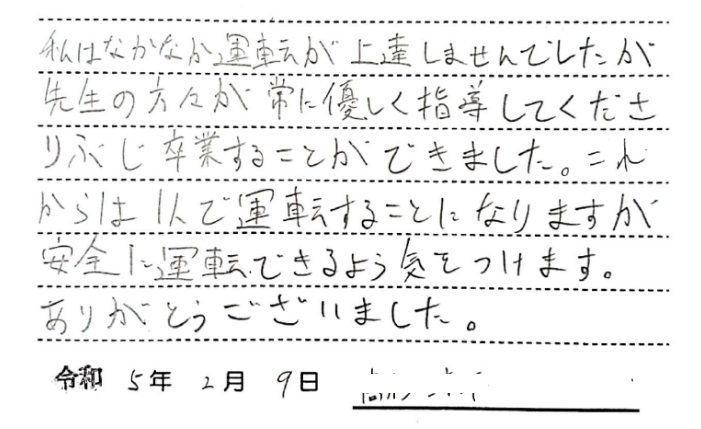 私はなかなか運転が上達しませんでしたが
先生の方々が常に優しく指導してくださ
りぶじ卒業することができました。これ
からは1人で運転することになりますが
安全に運転できるよう気をつけます。
ありがとうございました。
令和 5年 2月 9日